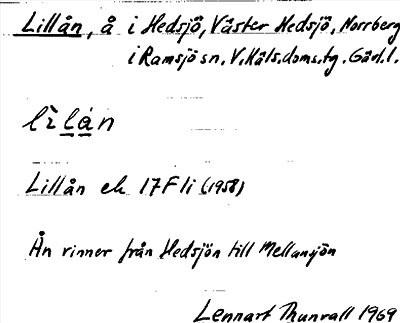 Lillån, å i Hedsjö, Väster Hedsjö, Norrberg
i Ramsjö sn. V. Häls. doms. tg. Gävl. l.
lìlán
Lillån ek 17F li (1958)
Ån rinner från Hedsjön till Mellansjön
Lennart Thunvall 1969